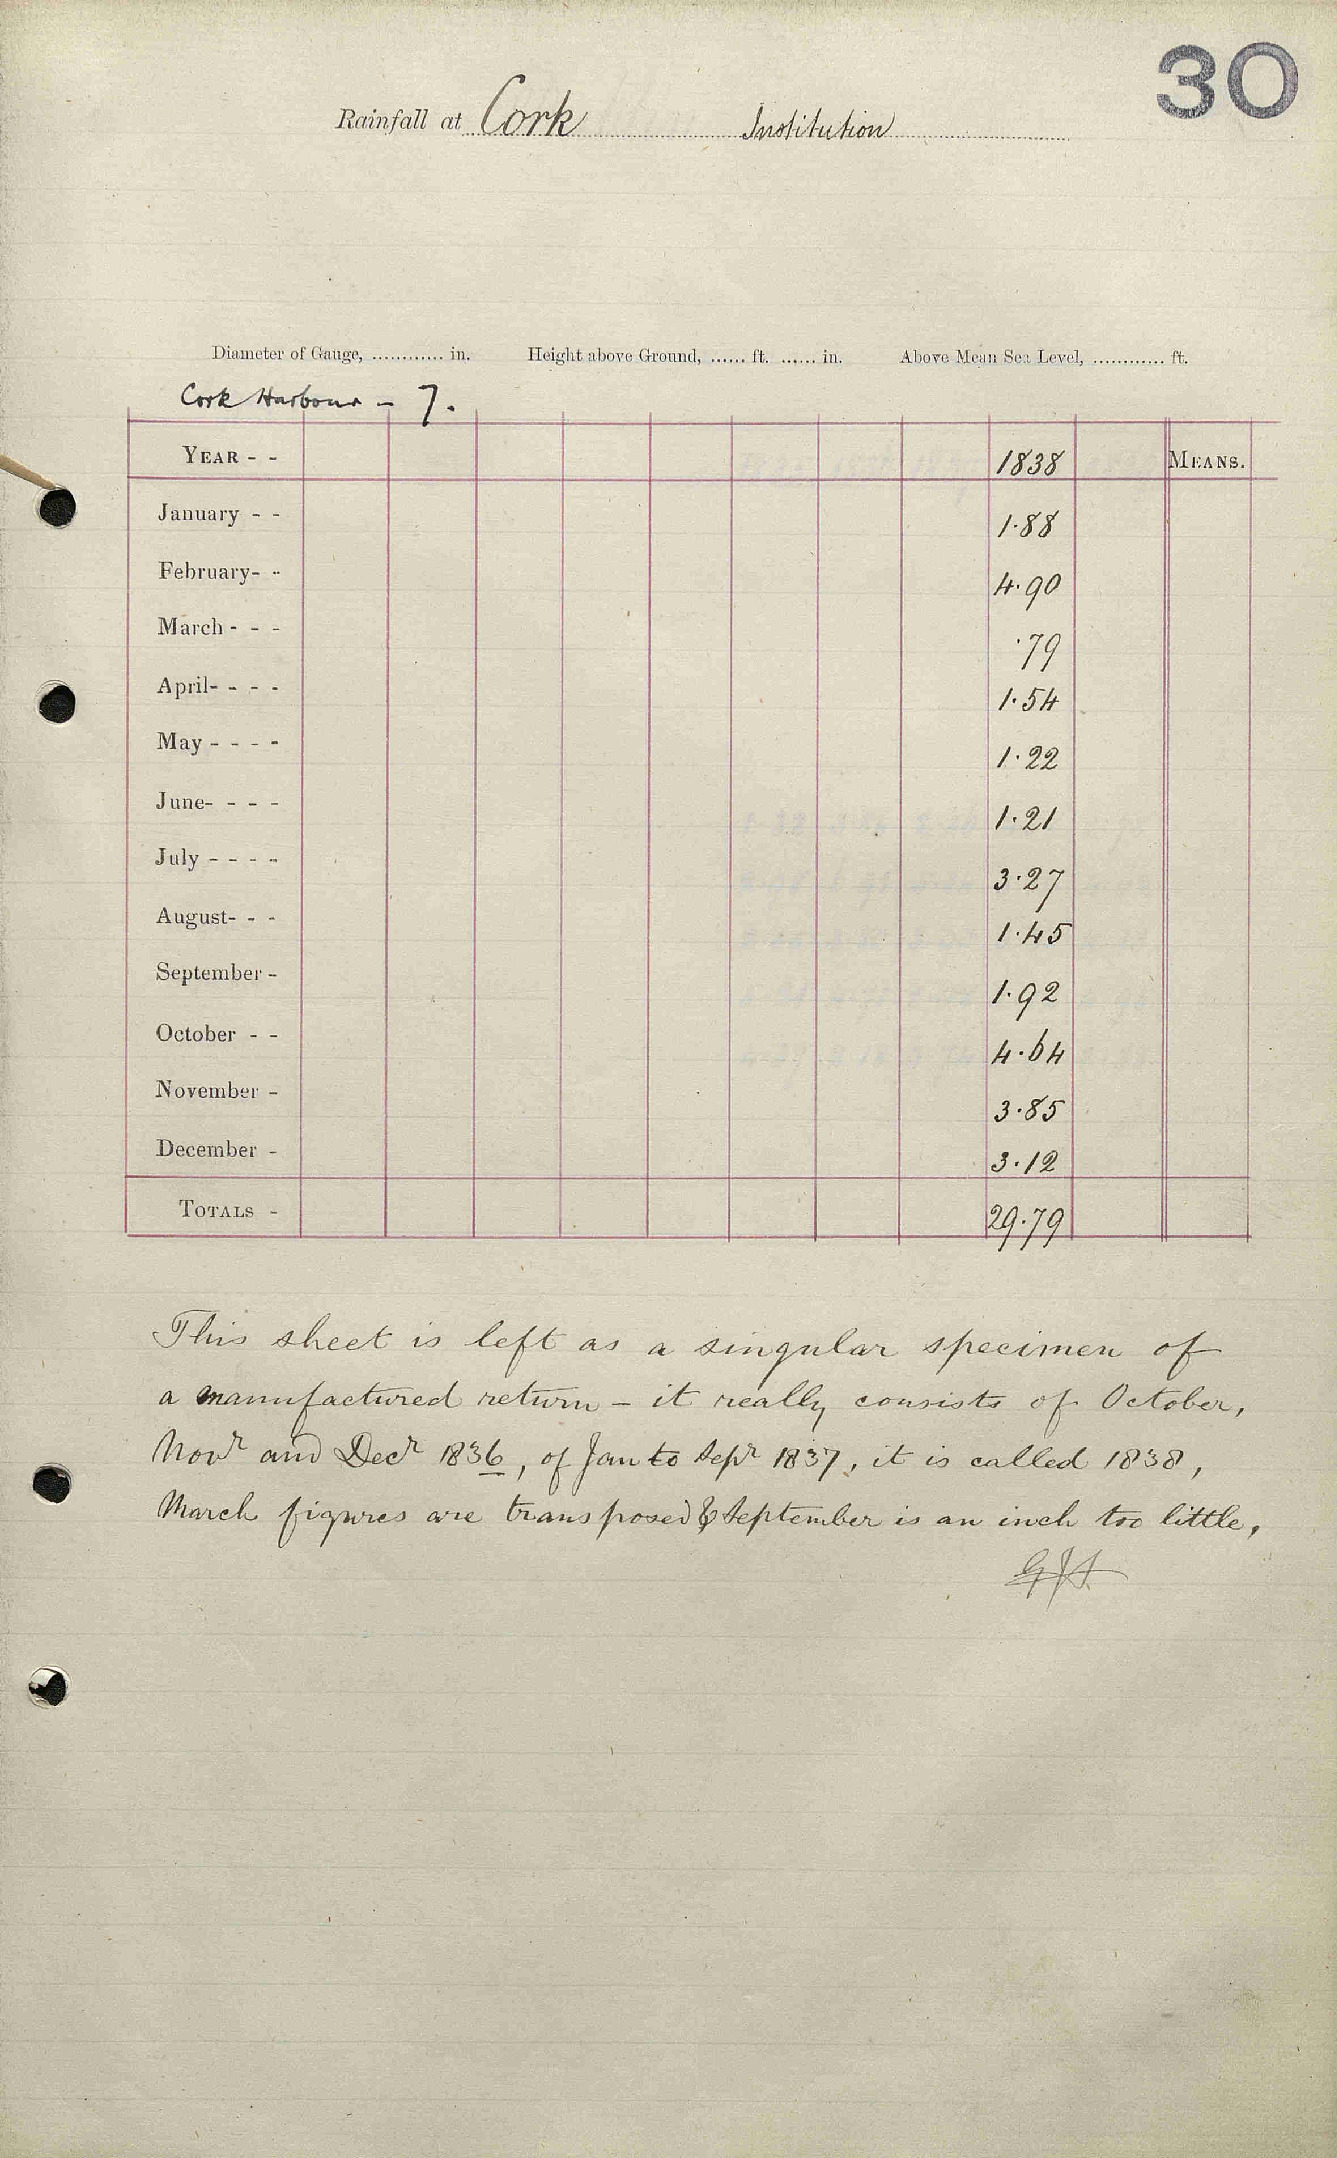 30
Rainfall at Cork Institution
Diameter of Gauge, ............ in. Height above Ground, ...... ft. ...... in. Above Mean Sea Level, ............ ft.
Cork Harbour - 7.
YEAR - - 1838 MEANS.
January - - 1.88
February- - 4.90
March - - - .79
April- - - - 1.54
May - - - - 1.22
June- - - - 1.21
July - - - - 3.27
August- - - 1.45
September - 1.92
October - - 4.64
November - 3.85
December - 3.12
TOTALS - 29.79
This sheet is left as a singular specimen of
a manufactured return - it really consists of October,
Novr and Decr 1836, of Jan to Sepr 1837, it is called 1838,
March figures are transposed & September is an inch too little,
GJS